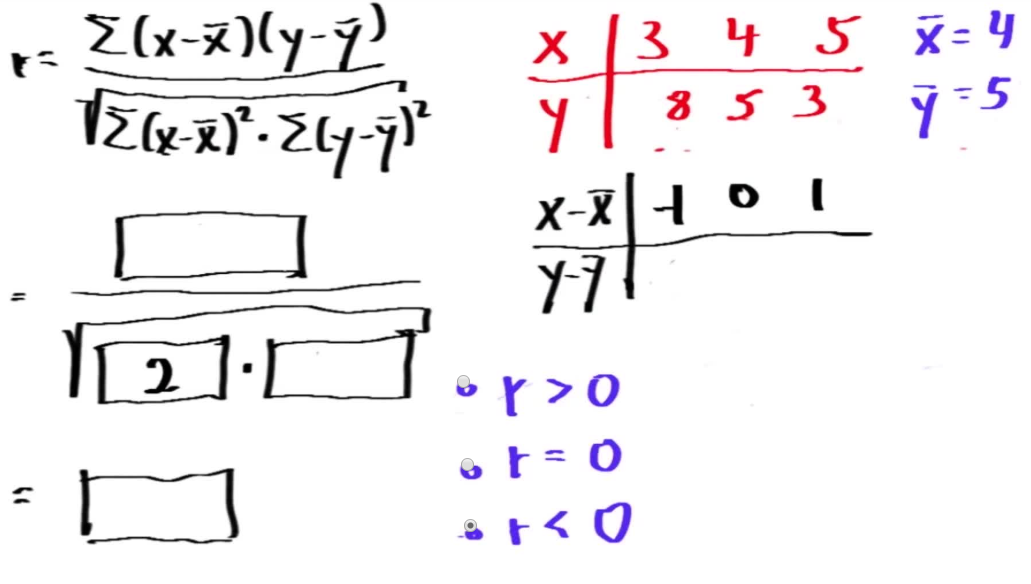 r = Σ(x-x̄)(y-ȳ) / √Σ(x-x̄)² · Σ(y-ȳ)²
x | 3 4 5
y | 8 5 3
x̄ = 4
ȳ = 5
x-x̄ | -1 0 1
y-ȳ |
= √ 2 ·
• r > 0
• r = 0
• r < 0
=